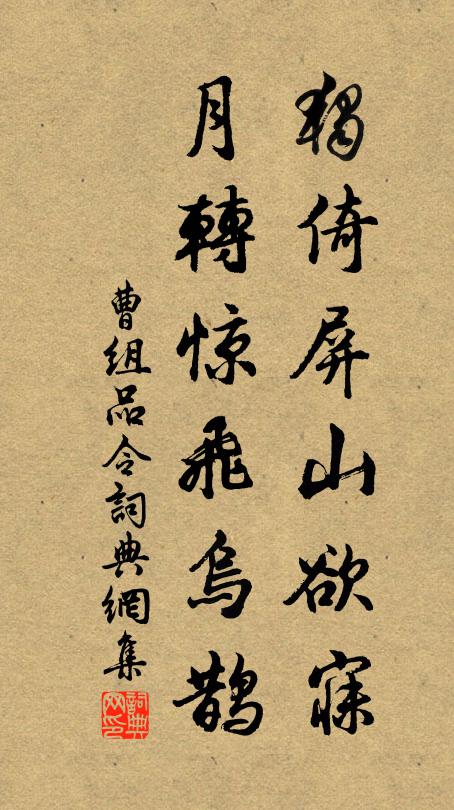 獨倚屏山欲寐
月轉惊飛烏鵲
曹組品令詞典網集
詞典网印